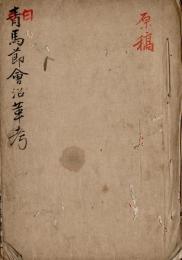 原稿
白
青馬節會沿革考